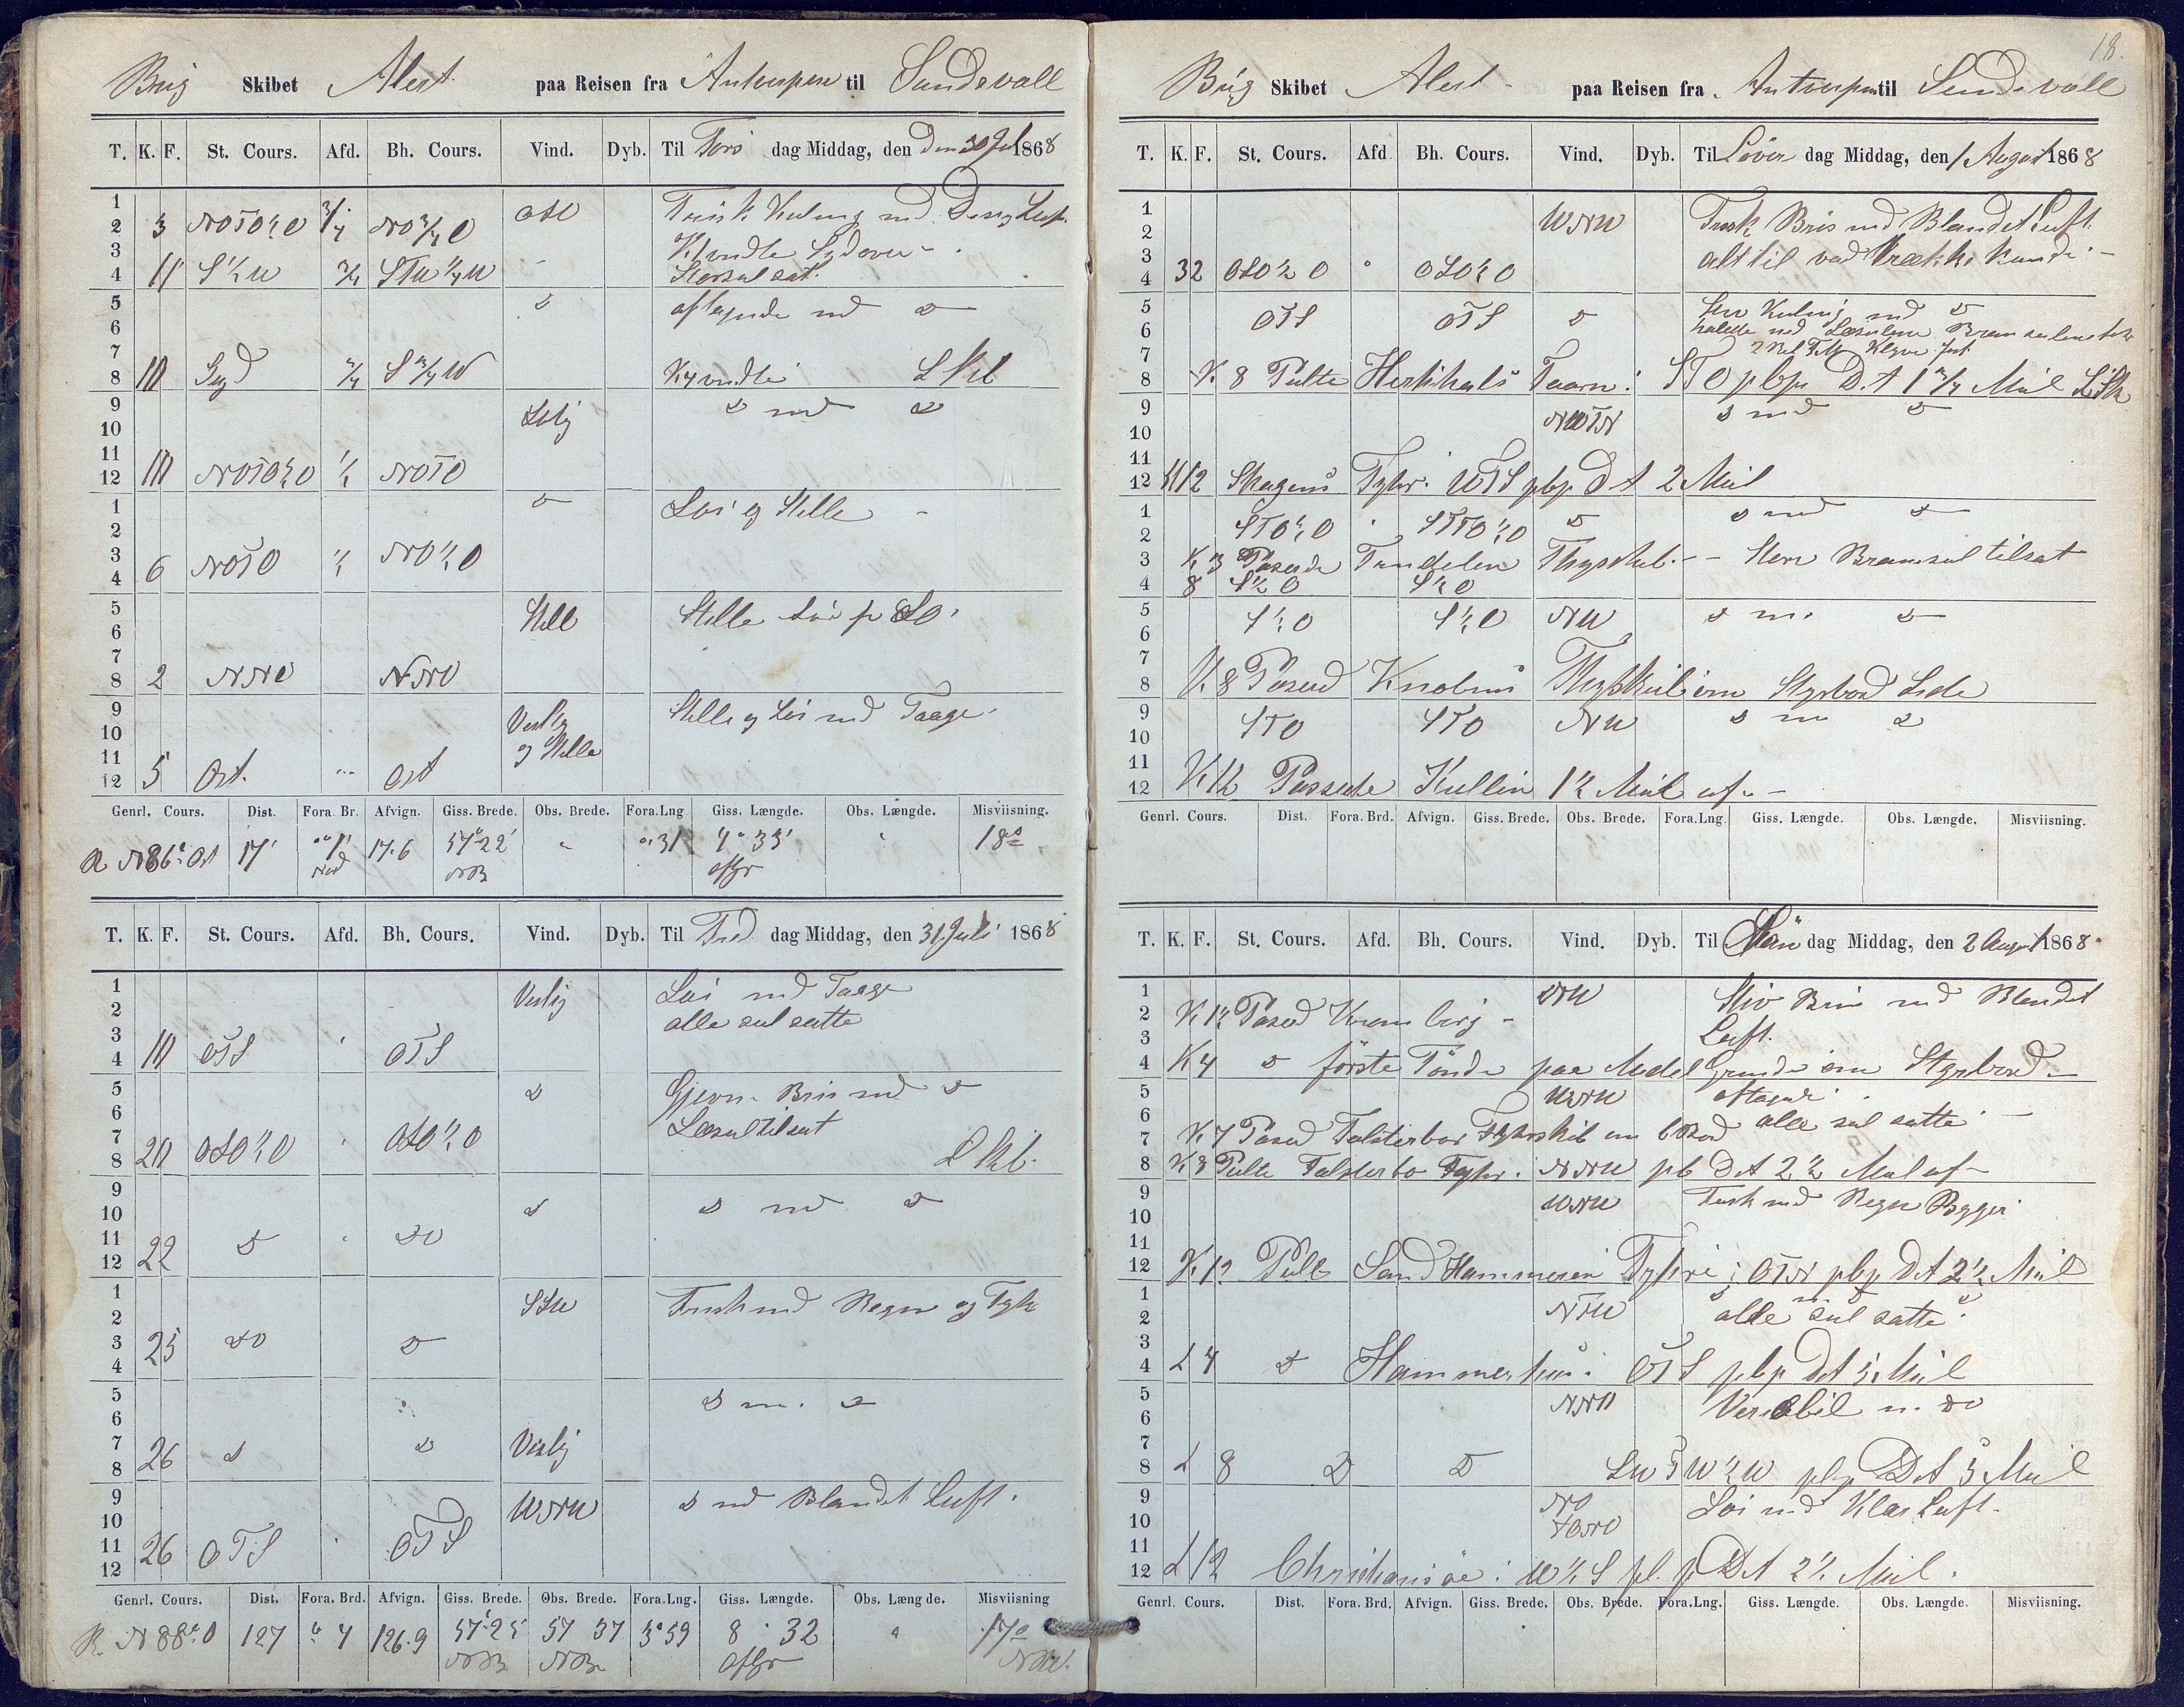 Brig Skibet Alert paa Reisen fra Antverpen til Sundsvall
T. K. F. St. Cours. Afd. Bh. Cours. Vind. Dyb. Til Tors dag Middag, den 30 Jul 1868
1
2 3 NOTO½O ¾ NO¾O OSO Frisk Kuling md Disig Luft.
3 Kl vendte Sydover
4 11 S½W STW¼W Storseil sat
5 aftagende md do
6
7
8 10 Syd S¾W K4 vendte
9 do md do
10
11
12 10 NOTO½O ½ NOTO
1 do Løi og Stille
2
3
4 6 NOTO ½ NO½O
5 Stille Stille
6
7
8 2 NNO NNO
9 Vestlig Stille og Løi md Taage
10 og Stille
11
12 5 Ost. Ost
Genrl. Cours. Dist. Fora. Br. Afvign. Giss. Brede. Obs. Brede. Fora.Lng Giss. Længde. Obs. Længde. Misviisning.
R N86° Ost 17' 17.6 57°22' 31 4° 33' 18°
T. K. F. St. Cours. Afd. Bh. Cours. Vind. Dyb. Til Fre dag Middag, den 31 Juli 1868
1 Vestlig Løi md Taage
2 alle seil satte
3
4 10 OTS OTS
5 do Gjevn Bris md do
6
7 Læseil tilsat
8 20 OSO½O OSO½O
9 do do md do
10
11
12 22 do do
1 SSW Frisk md Regn og Tyk
2
3
4 25 do do
5 do m. do
6
7
8 26 do do Vestlig
9 WNW do md Blandet Luft.
10
11
12 26 OTS OTS
Genrl. Cours. Dist. Fora. Brd. Afvign. Giss. Brede. Obs. Brede. Fora.Lng. Giss. Længde. Obs. Længde. Misviisning
R. N 88° O 127 4 126.9 57°25' 57 37 3°59 8° 32 17°
18.
Brig Skibet Alert paa Reisen fra Antverpen til Sundsvall
T. K. F. St. Cours. Afd Bh. Cours. Vind. Dyb. Til Löver dag Middag, den 1 August 1868
1 WNW Frisk Bris md Blandet Luft.
2
3 alt til vad Trække kunde
4 32 OSO½O OSO½O
5 OTS OTS do Kuling md do
6
7
8 K 8 Peilte Hirtshals Taarn i STO pbp D. A 1¾ Miil
9 NWTN do md do
10
11
12 K12 Skagens Fyhr i WTS pbp D A 2 Miil
1 do md do
2 STO½O STO½O do
3 K 3 Paserede Trindelen Fhyrskib. Bramseil tilsat
4 8 S½O S½O
5 S½O S½O NW do m. do
6
7
8 K 8 Paserede Knobens Fhyrskib om Styrbord Side
9 STO STO NW do m do
10
11
12 K 12 Passerte Kullen 1½ Miil af
Genrl. Cours. Dist. Fora. Brd. Afvign. Giss. Brede. Obs. Brede. Fora.Lng. Giss. Længde. Obs. Længde. Misviisning.
T. K. F. St. Cours. Afd. Bh. Cours. Vind. Dyb. Til Mån dag Middag, den 2 August 1868
1 Stiv Bris md Blandet
2 K 1½ Paserd Kronborg
3 Luft.
4 K 4 do förste Tönde paa Medel Grunde om Styrbord
5 WNW aftagende
6 alle seil satte
7 K 7 Paserd Falsterbo Fyhrskib om BBord
8 K 8 Peilte Falsterbo Fyhr i NNW pb D A 2½ Miil af
9 WNW Frisk md Regn Bygger
10
11
12 K 12 Peilte Sand Hammeren Fyhr i OTN pbp D A 2½ Miil
1
2 NTW alle seil satte
3
4 K 4 do Hammerhus i OTS pbp D A 5 Miil
5 NNO Variabil m. do
6
7
8 K 8 do do pbp D A 5 Miil
9 NO Løi md Klar Luft.
10
11
12 K 12 Christiansøe i W½S pbp D A 2½ Miil.
Genrl. Cours. Dist. Fora. Brd. Afvign. Giss. Brede. Obs. Brede. Fora.Lng. Giss. Længde. Obs. Længde. Misviisning.